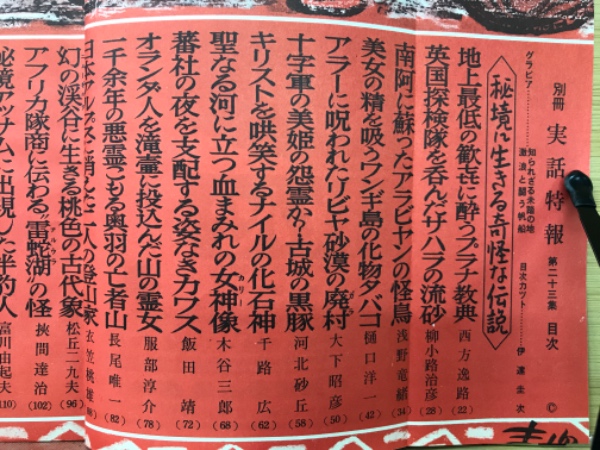 別冊 実話特報 第二十三集 目次
グラビア
知られざる未踏の地
激浪と闘う帆船
目次カット 伊達圭次
秘境に生きる奇怪な伝説
地上最低の歓喜に酔うプラナ教典 西方逸路 (22)
英国探検隊を呑んだサハラの流砂 柳小路治彦 (28)
南阿に蘇ったアラビヤンの怪鳥 浅野竜緒 (34)
美女の精を吸うフンギ島の化物タバコ 樋口洋一 (42)
アラーに呪われたリビヤ砂漠の廃村 大下昭彦 (50)
十字軍の美姫の怨霊か?古城の黒豚 河北砂丘 (58)
キリストを哄笑するナイルの化石神 千路広 (62)
聖なる河に立つ血まみれの女神像 木谷三郎 (68)
カリー
蕃社の夜を支配する姿なきカワス 飯田靖 (72)
オランダ人を滝壷に投込んだ山の霊女 服部淳介 (78)
一千余年の悪霊こもる奥羽の亡者山 長尾唯一 (82)
日本アルプスに消えた二人の登山家 衣笠桃雄
幻の渓谷に生きる桃色の古代象 松丘二九夫 (96)
アフリカ隊商に伝わる"雷蛇湖"の怪 挾間達治 (102)
秘境アッサムに出現した半豹人 富川由起夫 (110)